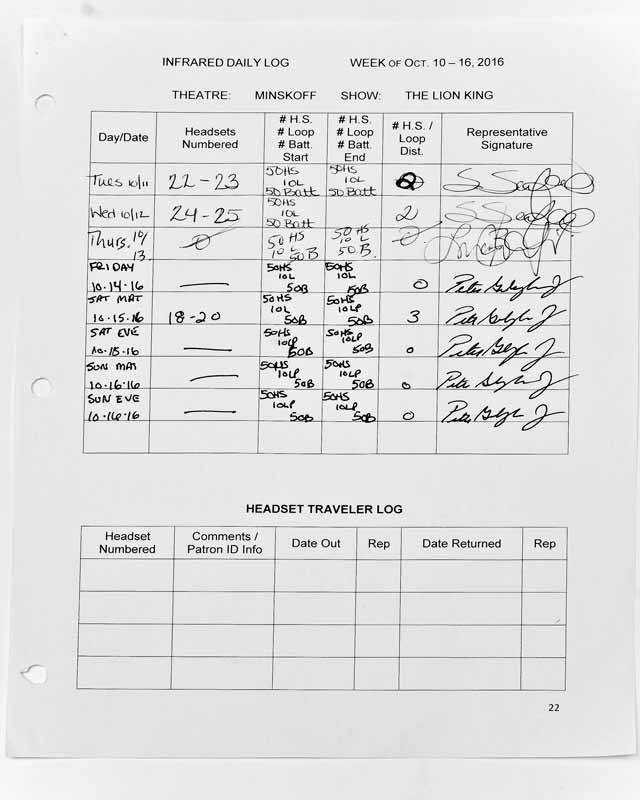 INFRARED DAILY LOG WEEK OF OCT. 10 – 16, 2016
THEATRE: MINSKOFF SHOW: THE LION KING
Day/Date Headsets Numbered # H.S. # Loop # Batt. Start # H.S. # Loop # Batt. End # H.S. / Loop Dist. Representative Signature
Tues 10/11 22-23 50HS 10L 50 Batt 50HS 10L 50 Batt 2
Wed 10/12 24-25 50HS 10L 50 Batt 2
Thurs. 10/13 0 50 HS 10 L 50 B 50 HS 10 L 50 B. 0
FRIDAY 10.14.16 — 50HS 10L 50B 50HS 10L 50B 0
SAT MAT 10.15.16 18-20 50HS 10L 50B 50HS 10LP 50B 3
SAT EVE 10.15.16 — 50HS 10LP 50B 50HS 10LP 50B 0
SUN MAT 10.16.16 — 50HS 10LP 50B 50HS 10LP 50B 0
SUN EVE 10.16.16 — 50HS 10LP 50B 50HS 10LP 50B 0
HEADSET TRAVELER LOG
Headset Numbered Comments / Patron ID Info Date Out Rep Date Returned Rep
22